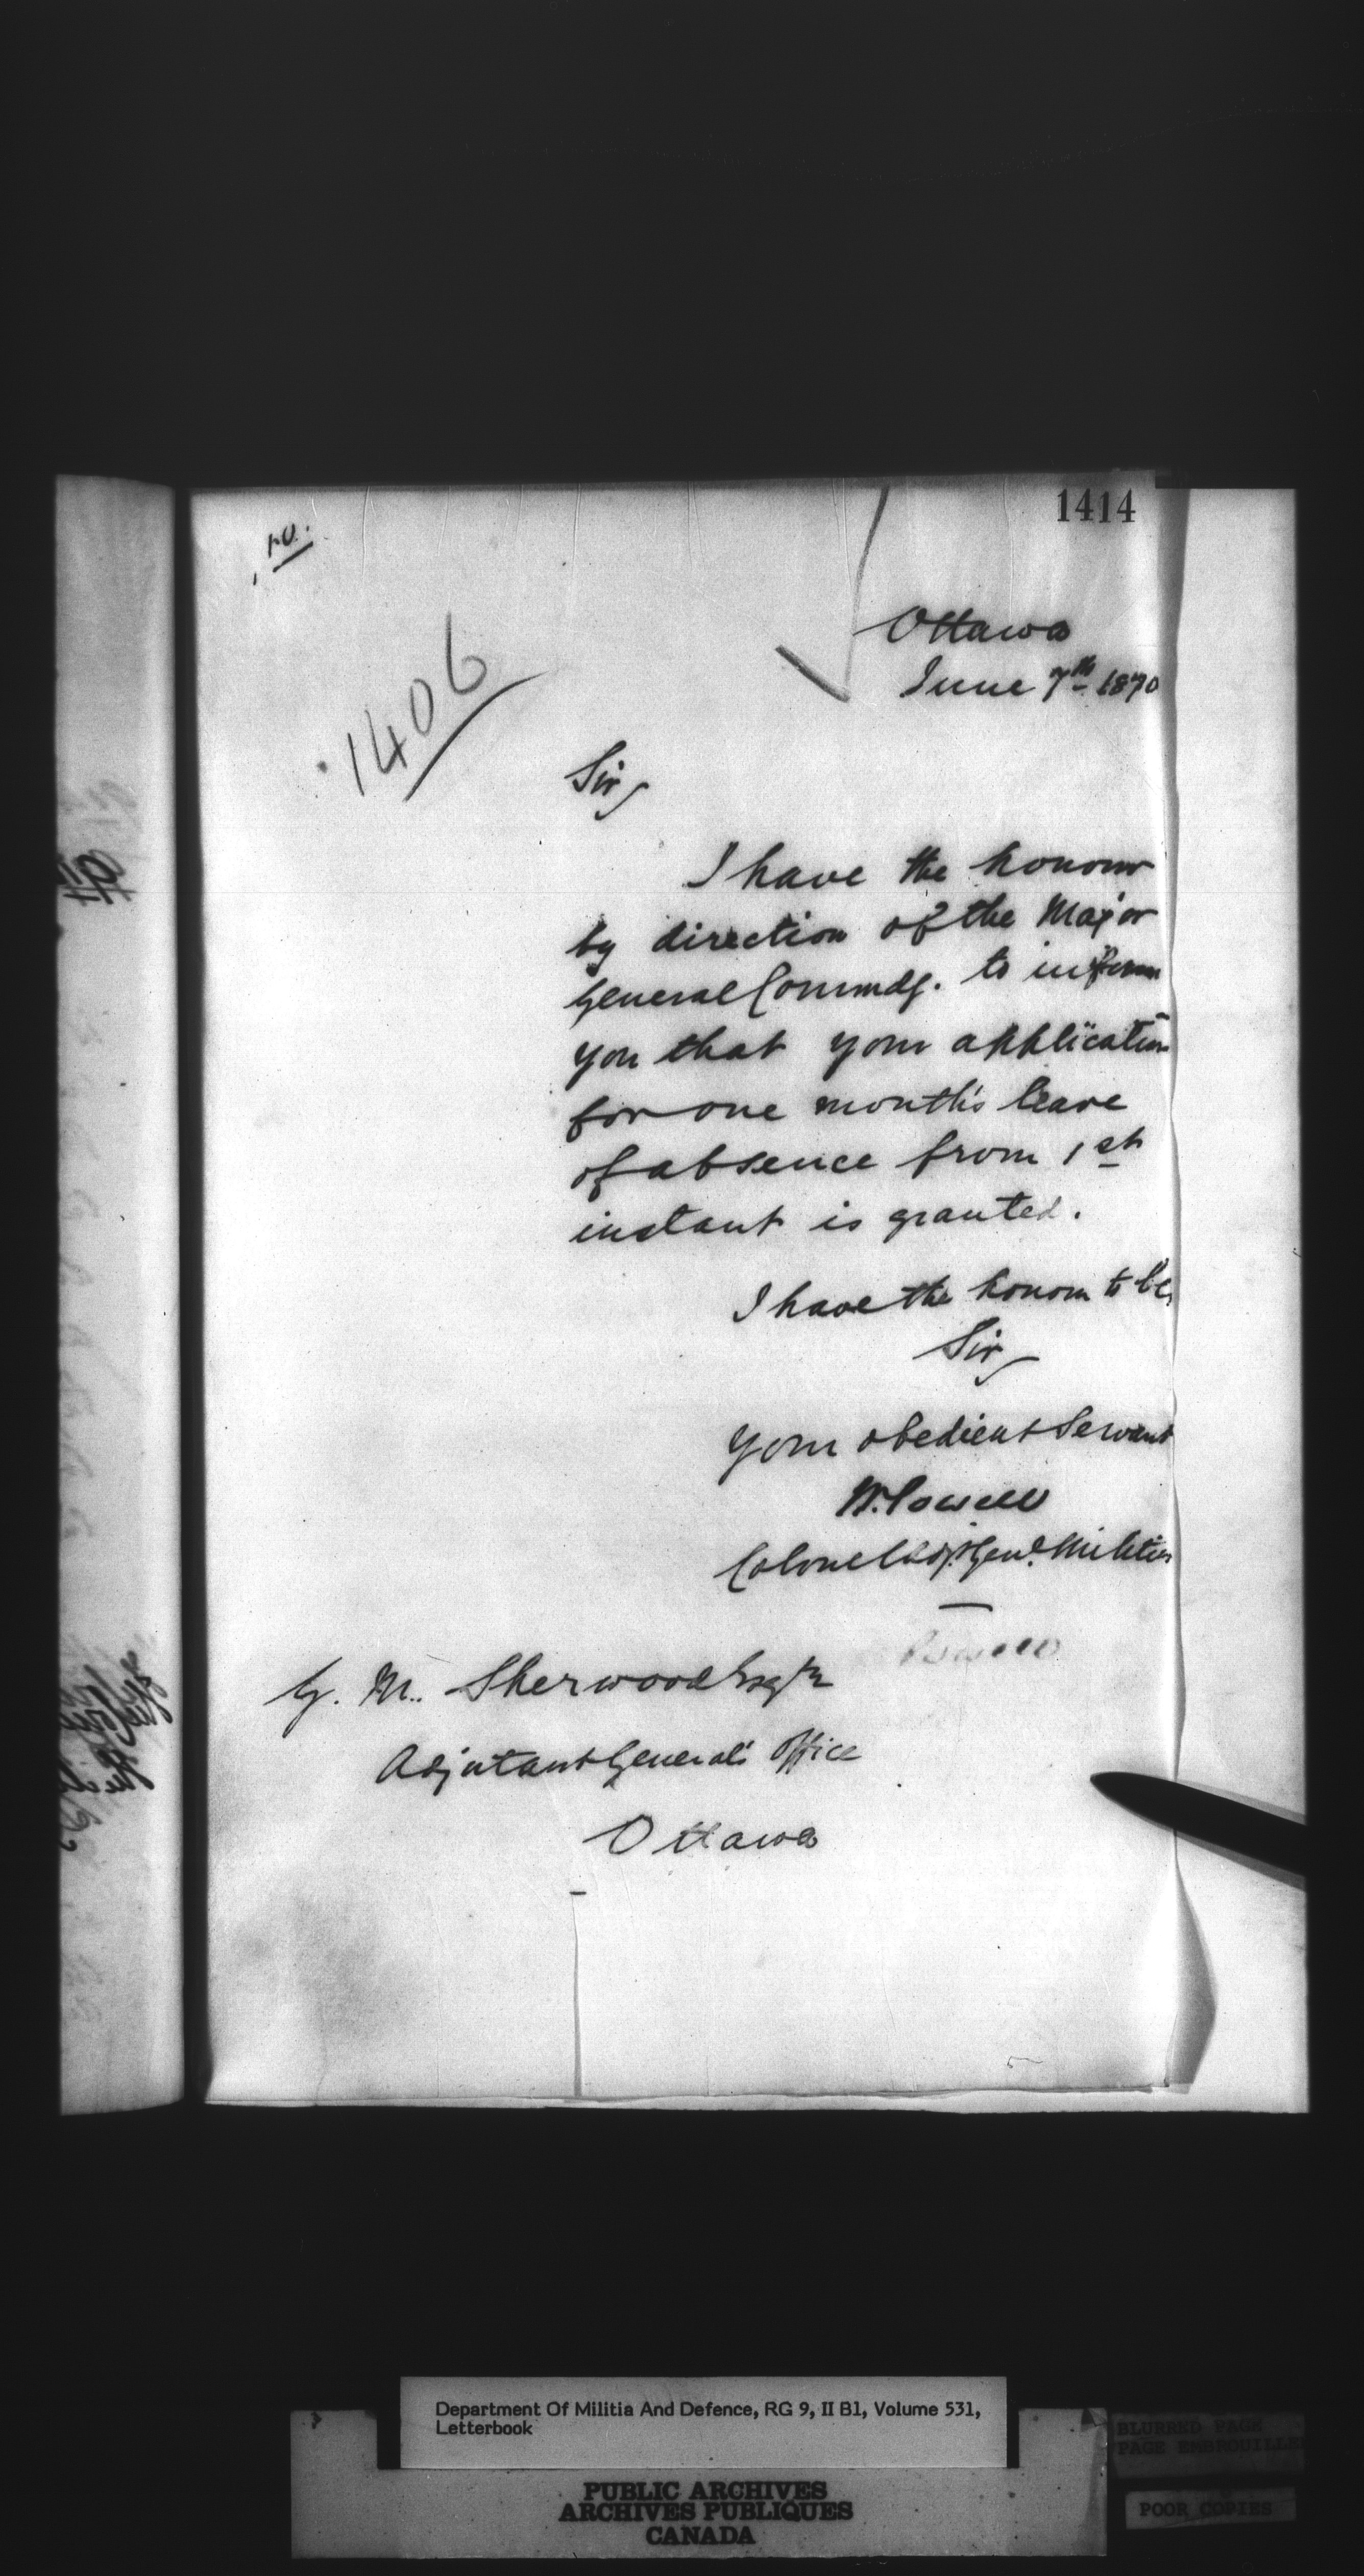 1414
1406
Ottawa
June 7th 1870
Sir
I have the honour
by direction of the Major
General Commdg. to inform
you that your application
for one month's leave
of absence from 1st
instant is granted.
I have the honour to be,
Sir
Your obedient Servant
W. Powell
Colonel Genl. Militia
Powell
G. M. Sherwood Esqr
Adjutant General's Office
Ottawa
Department Of Militia And Defence, RG 9, II B1, Volume 531,
Letterbook
PUBLIC ARCHIVES
ARCHIVES PUBLIQUES
CANADA
BLURRED PAGE
PAGE EMBROUILLEE
POOR COPIES